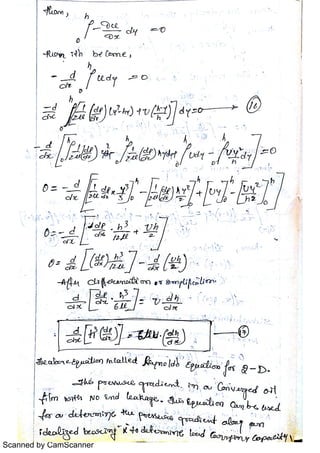 then,
∫₀ʰ -∂u/∂x dy = 0
then ith become,
- d/dx ∫₀ʰ u dy = 0
-d/dx ∫₀ʰ [1/2μ (dp/dx) (y²-hy) + U (h-y/h)] dy = 0 → (10)
-d/dx [∫₀ʰ 1/2μ (dp/dx) y² dy - ∫₀ʰ 1/2μ (dp/dx) hy dy + ∫₀ʰ U dy - ∫₀ʰ Uy/h dy] = 0
0 = -d/dx [[1/2μ dp/dx × y³/3]₀ʰ - [1/2μ (dp/dx) hy²/2]₀ʰ + [Uy]₀ʰ - [Uy²/h2]₀ʰ]
0 = -d/dx [-dp/dx · h³/12μ + Uh/2]
0 = d/dx [(dp/dx) h³/12μ] - d/dx (Uh/2)
After differentiation or simplification
d/dx [dp/dx · h³/6μ] = U dh/dx
d/dx [h³ (dp/dx)] = 6μU (dh/dx)
The above Equation is called Reynolds Equation for 2-D.
The pressure gradient in a Converged oil
film with No End leakage. This Equation Can be used
for a determine the pressure gradient along an
idealized bearing & to determine load Carrying Capacity
Scanned by CamScanner